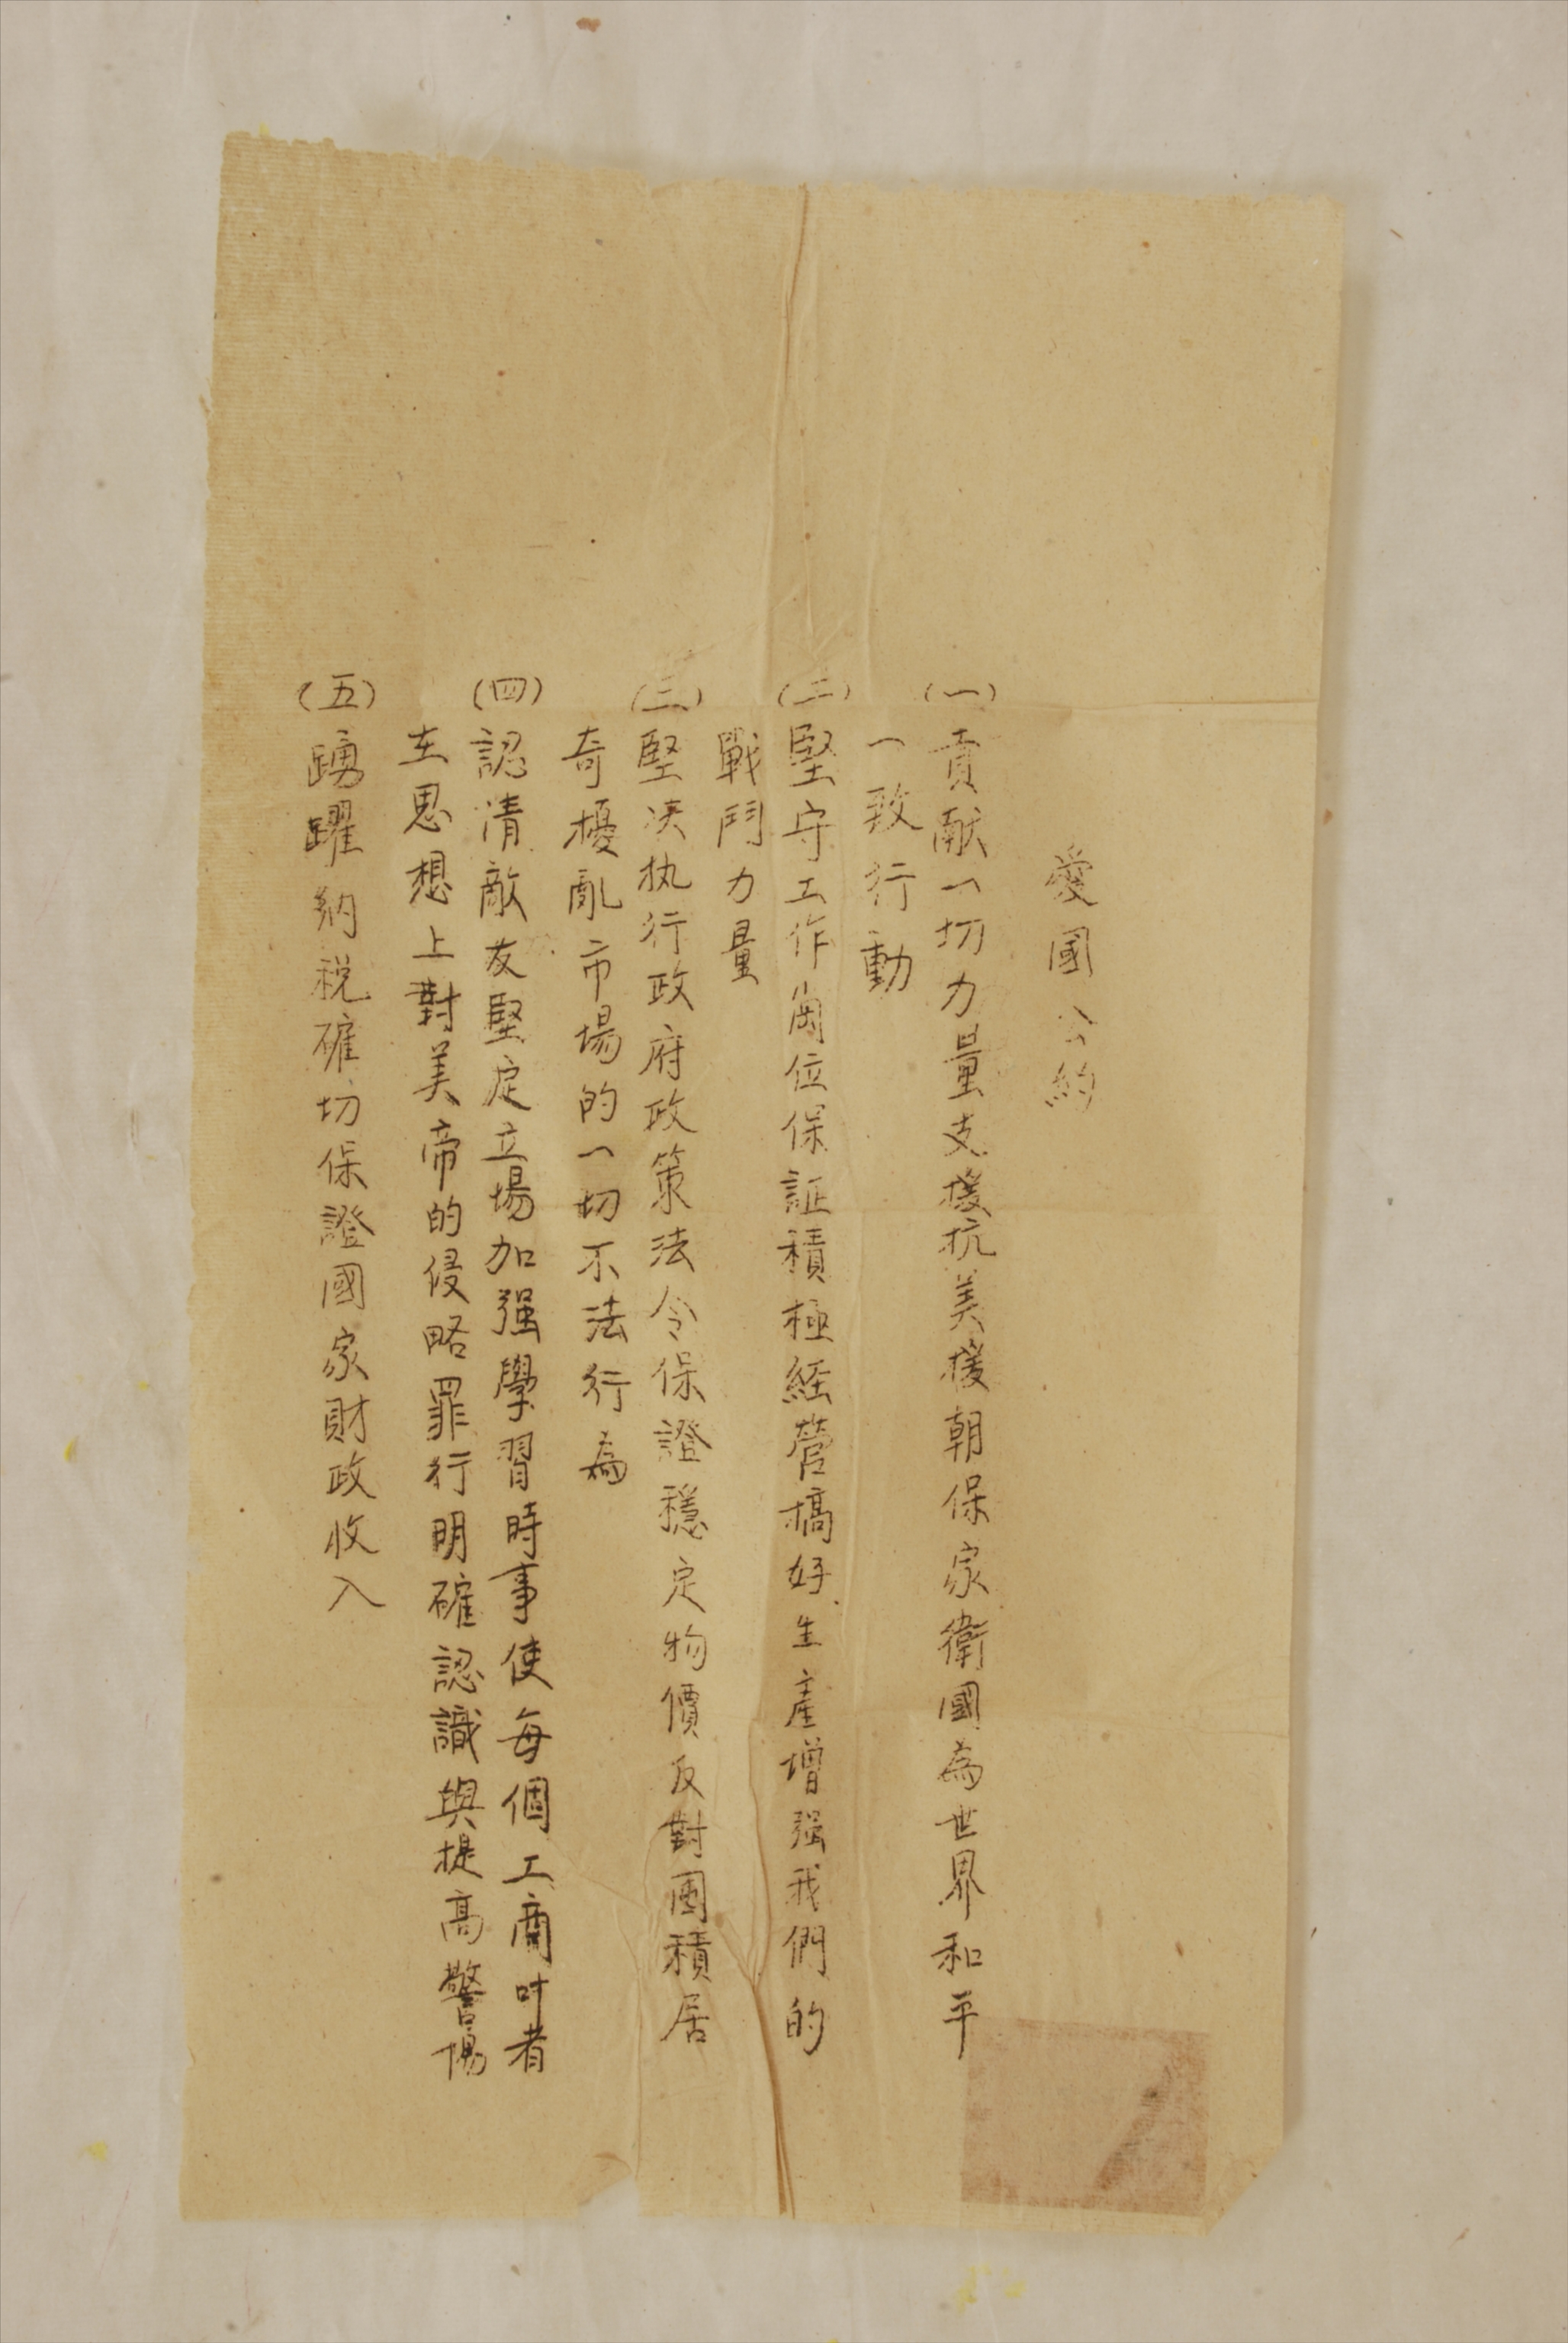 愛國公約
(一)貢献一切力量支援抗美援朝保家衛國為世界和平
一致行動
(二)堅守工作崗位保証積極経营搞好生產增强我們的
戰鬥力量
(三)堅决执行政府政策法令保證穩定物價反對囤積居
奇擾亂市場的一切不法行為
(四)認清敵友堅定立場加强學習時事使每個工商叶者
在思想上對美帝的侵略罪行明確認識與提高警惕
(五)踴躍納税確切保證國家財政收入